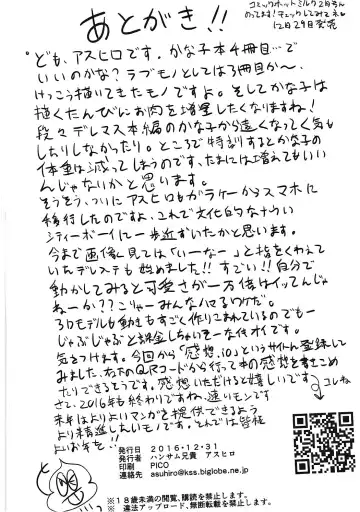 あとがき!!
コミックホットミルク2月号も
のってます!チェックしてみてネ♥
12月29日発売
ども、アスヒロです。かな子本4冊目…で
いいのかな?ラブモノとしては3冊目か〜、
けっこう描いてきたモノですよ。そしてかな子は
描くたんびにお肉を増量したくなりますね!
段々デレマス本編のかな子から遠くなってく気も
したりしなかったり。ところで特訓するとかな子の
体重は減ってしまうのです、たまには増えてもいい
んじゃないかと思います。
そうそう、ついにアスヒロもガラケーからスマホに
移行したのですよ、これで文化的なナウい
シティーボーイに一歩近ずいたかと思います。
今まで画像見ては「いーなー」と指をくわえて
いたデレステも始めました!!すごい!!自分で
動かしてみると可愛さが一万倍はイッてんじゃ
ねーか??こりゃーみんなハマるワケだ。
3Dモデルも動きもすごく作りこまれているのでもー
じゃぶじゃぶと課金しちゃいそーなイキオイです。
気をつけます。今回から「感想.io」というサイトに登録して
みました、右下のQRコードから行って本の感想を書きこめ
たりできるそうです。感想いただけると嬉しいです
コレね
さて、2016年も終わりですね、速いモンです
来年はよりよいマンガを提供できるよう
より精進したいモノです。でんでは皆様
よいお年を!!
発行日 2016・12・31
発行者 ハンサム兄貴 アスヒロ
印刷 PICO
連絡先 asuhiro@kss.biglobe.ne.jp
※18歳未満の閲覧、購読を禁止します。
※ 違法アップロード、無断転載を禁止します。